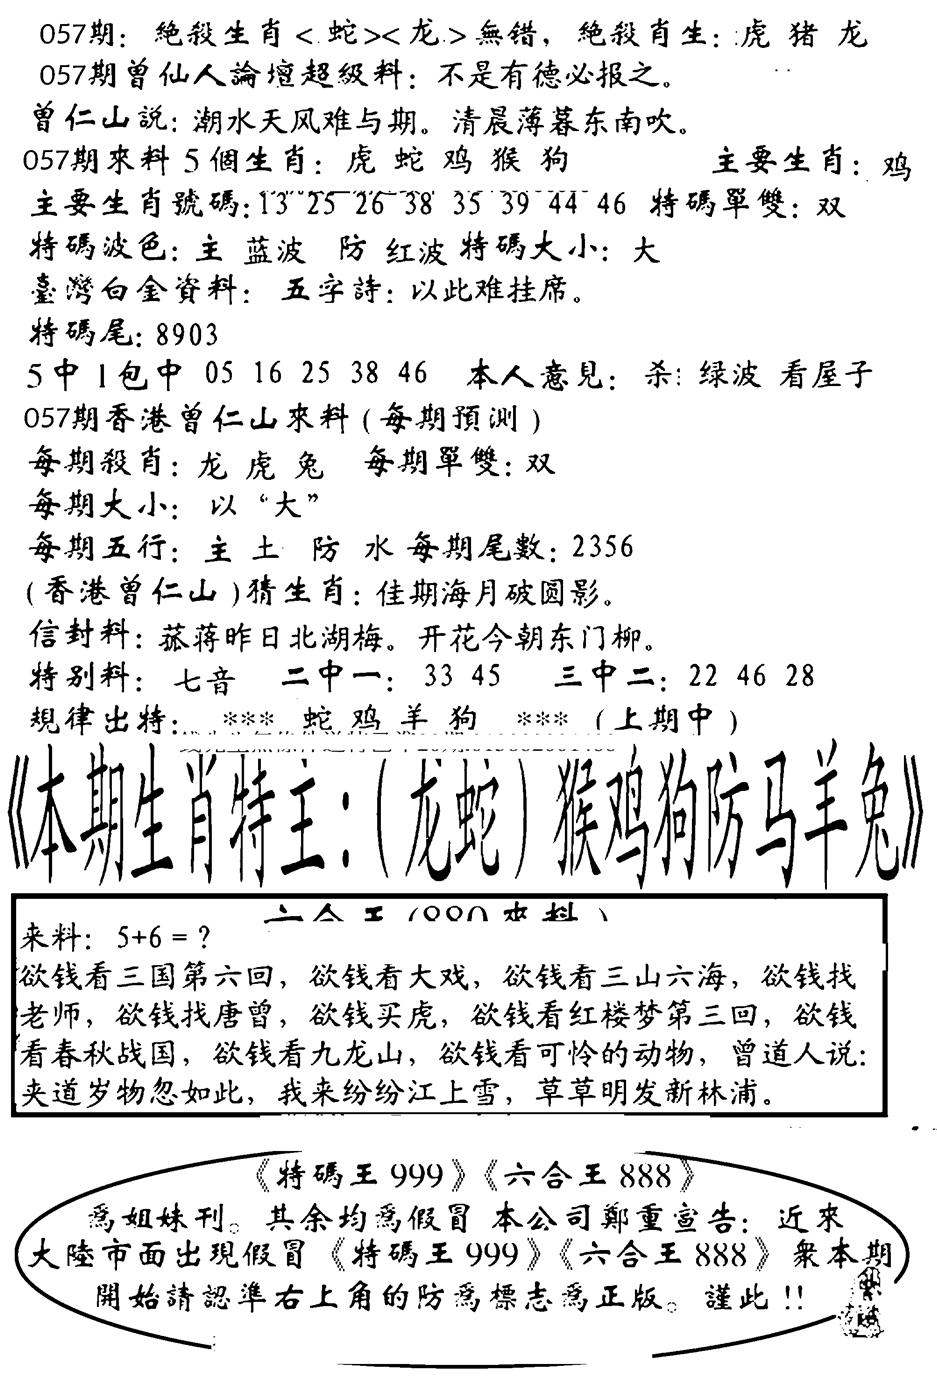 057期：絶殺生肖<蛇><龙>無错，絶殺肖生：虎 猪 龙
057期曾仙人論壇超級料：不是有德必报之。
曾仁山説：潮水天风难与期。清晨薄暮东南吹。
057期來料 5個生肖：虎 蛇 鸡 猴 狗 主要生肖：鸡
主要生肖號碼：13 25 26 38 35 39 44 46 特碼單雙：双
特碼波色：主 蓝波 防 红波 特碼大小：大
臺灣白金資料： 五字詩：以此难挂席。
特碼尾：8903
5中1包中 05 16 25 38 46 本人意見：杀：绿波 看屋子
057期香港曾仁山來料(每期預測)
每期殺肖：龙 虎 兔 每期單雙：双
每期大小： 以“大”
每期五行：主 土 防 水 每期尾數：2356
(香港曾仁山)猜生肖：佳期海月破圆影。
信封料：菰蒋昨日北湖梅。开花今朝东门柳。
特别料： 七音 二中一： 33 45 三中二：22 46 28
規律出特： *** 蛇 鸡 羊 狗 *** (上期中)
《本期生肖特主：(龙蛇)猴鸡狗防马羊兔》
来料： 5+6=？
欲钱看三国第六回，欲钱看大戏，欲钱看三山六海，欲钱找
老师，欲钱找唐曾，欲钱买虎，欲钱看红楼梦第三回，欲钱
看春秋战国，欲钱看九龙山，欲钱看可怜的动物，曾道人说：
夹道岁物忽如此，我来纷纷江上雪，草草明发新林浦。
《特碼王999》《六合王888》
爲姐妹刊。其余均爲假冒 本公司鄭重宣告：近來
大陸市面出現假冒《特碼王999》《六合王888》衆本期
開始請認準右上角的防爲標志爲正版。謹此!!